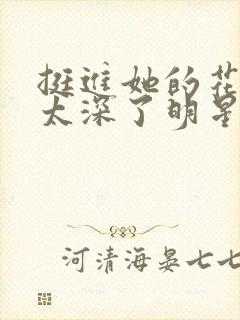 挺进她的花
太深了明星
河清海晏七七